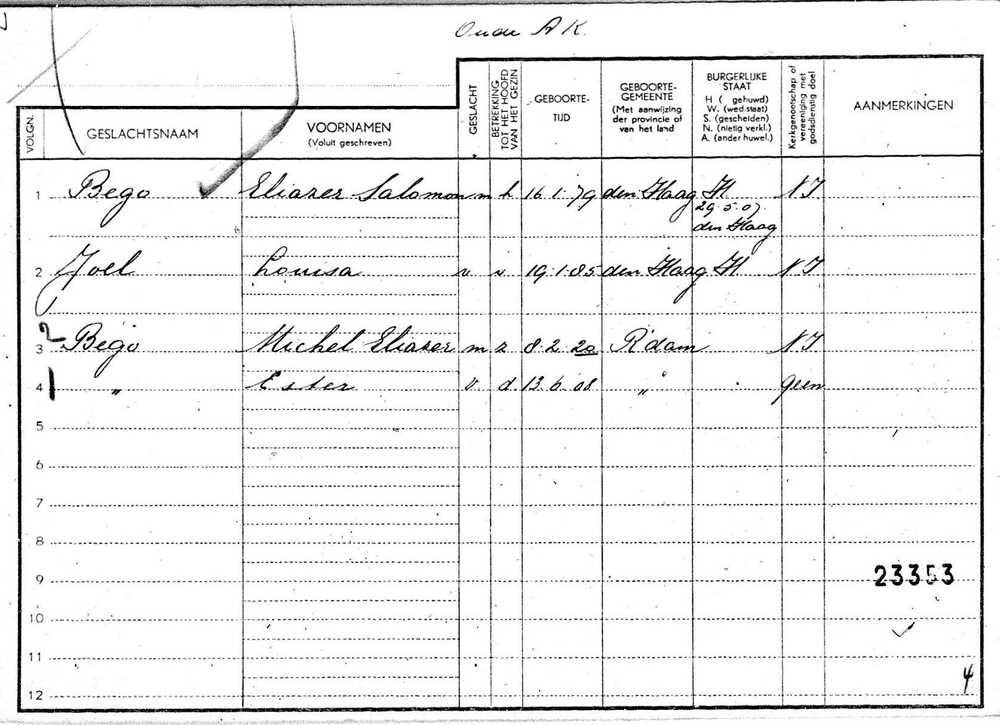 Oude A K.
VOLGN.
GESLACHTSNAAM
VOORNAMEN
(Voluit geschreven)
GESLACHT
BETREKKING TOT HET HOOFD VAN HET GEZIN
GEBOORTE-
TIJD
GEBOORTE-
GEMEENTE
(Met aanwijzing
der provincie of
van het land
BURGERLIJKE
STAAT
H ( gehuwd)
W. (wed.staat)
S. (gescheiden)
N. (nietig verkl.)
A. (ander huwel.)
Kerkgenootschap of vereeniging met godsdienstig doel
AANMERKINGEN
1 Bego Eliazer Salomon m h 16.1.79 den Haag H N I
29.5.07
den Haag
2 Joel Louisa v v 19.1.85 den Haag H N I
2
3 Bego Michel Eliazer m z 8.2.20 R'dam N I
1
4 " Ester v d. 13.6.08 " geen
5
6
7
8
9 23353
10
11
4
12